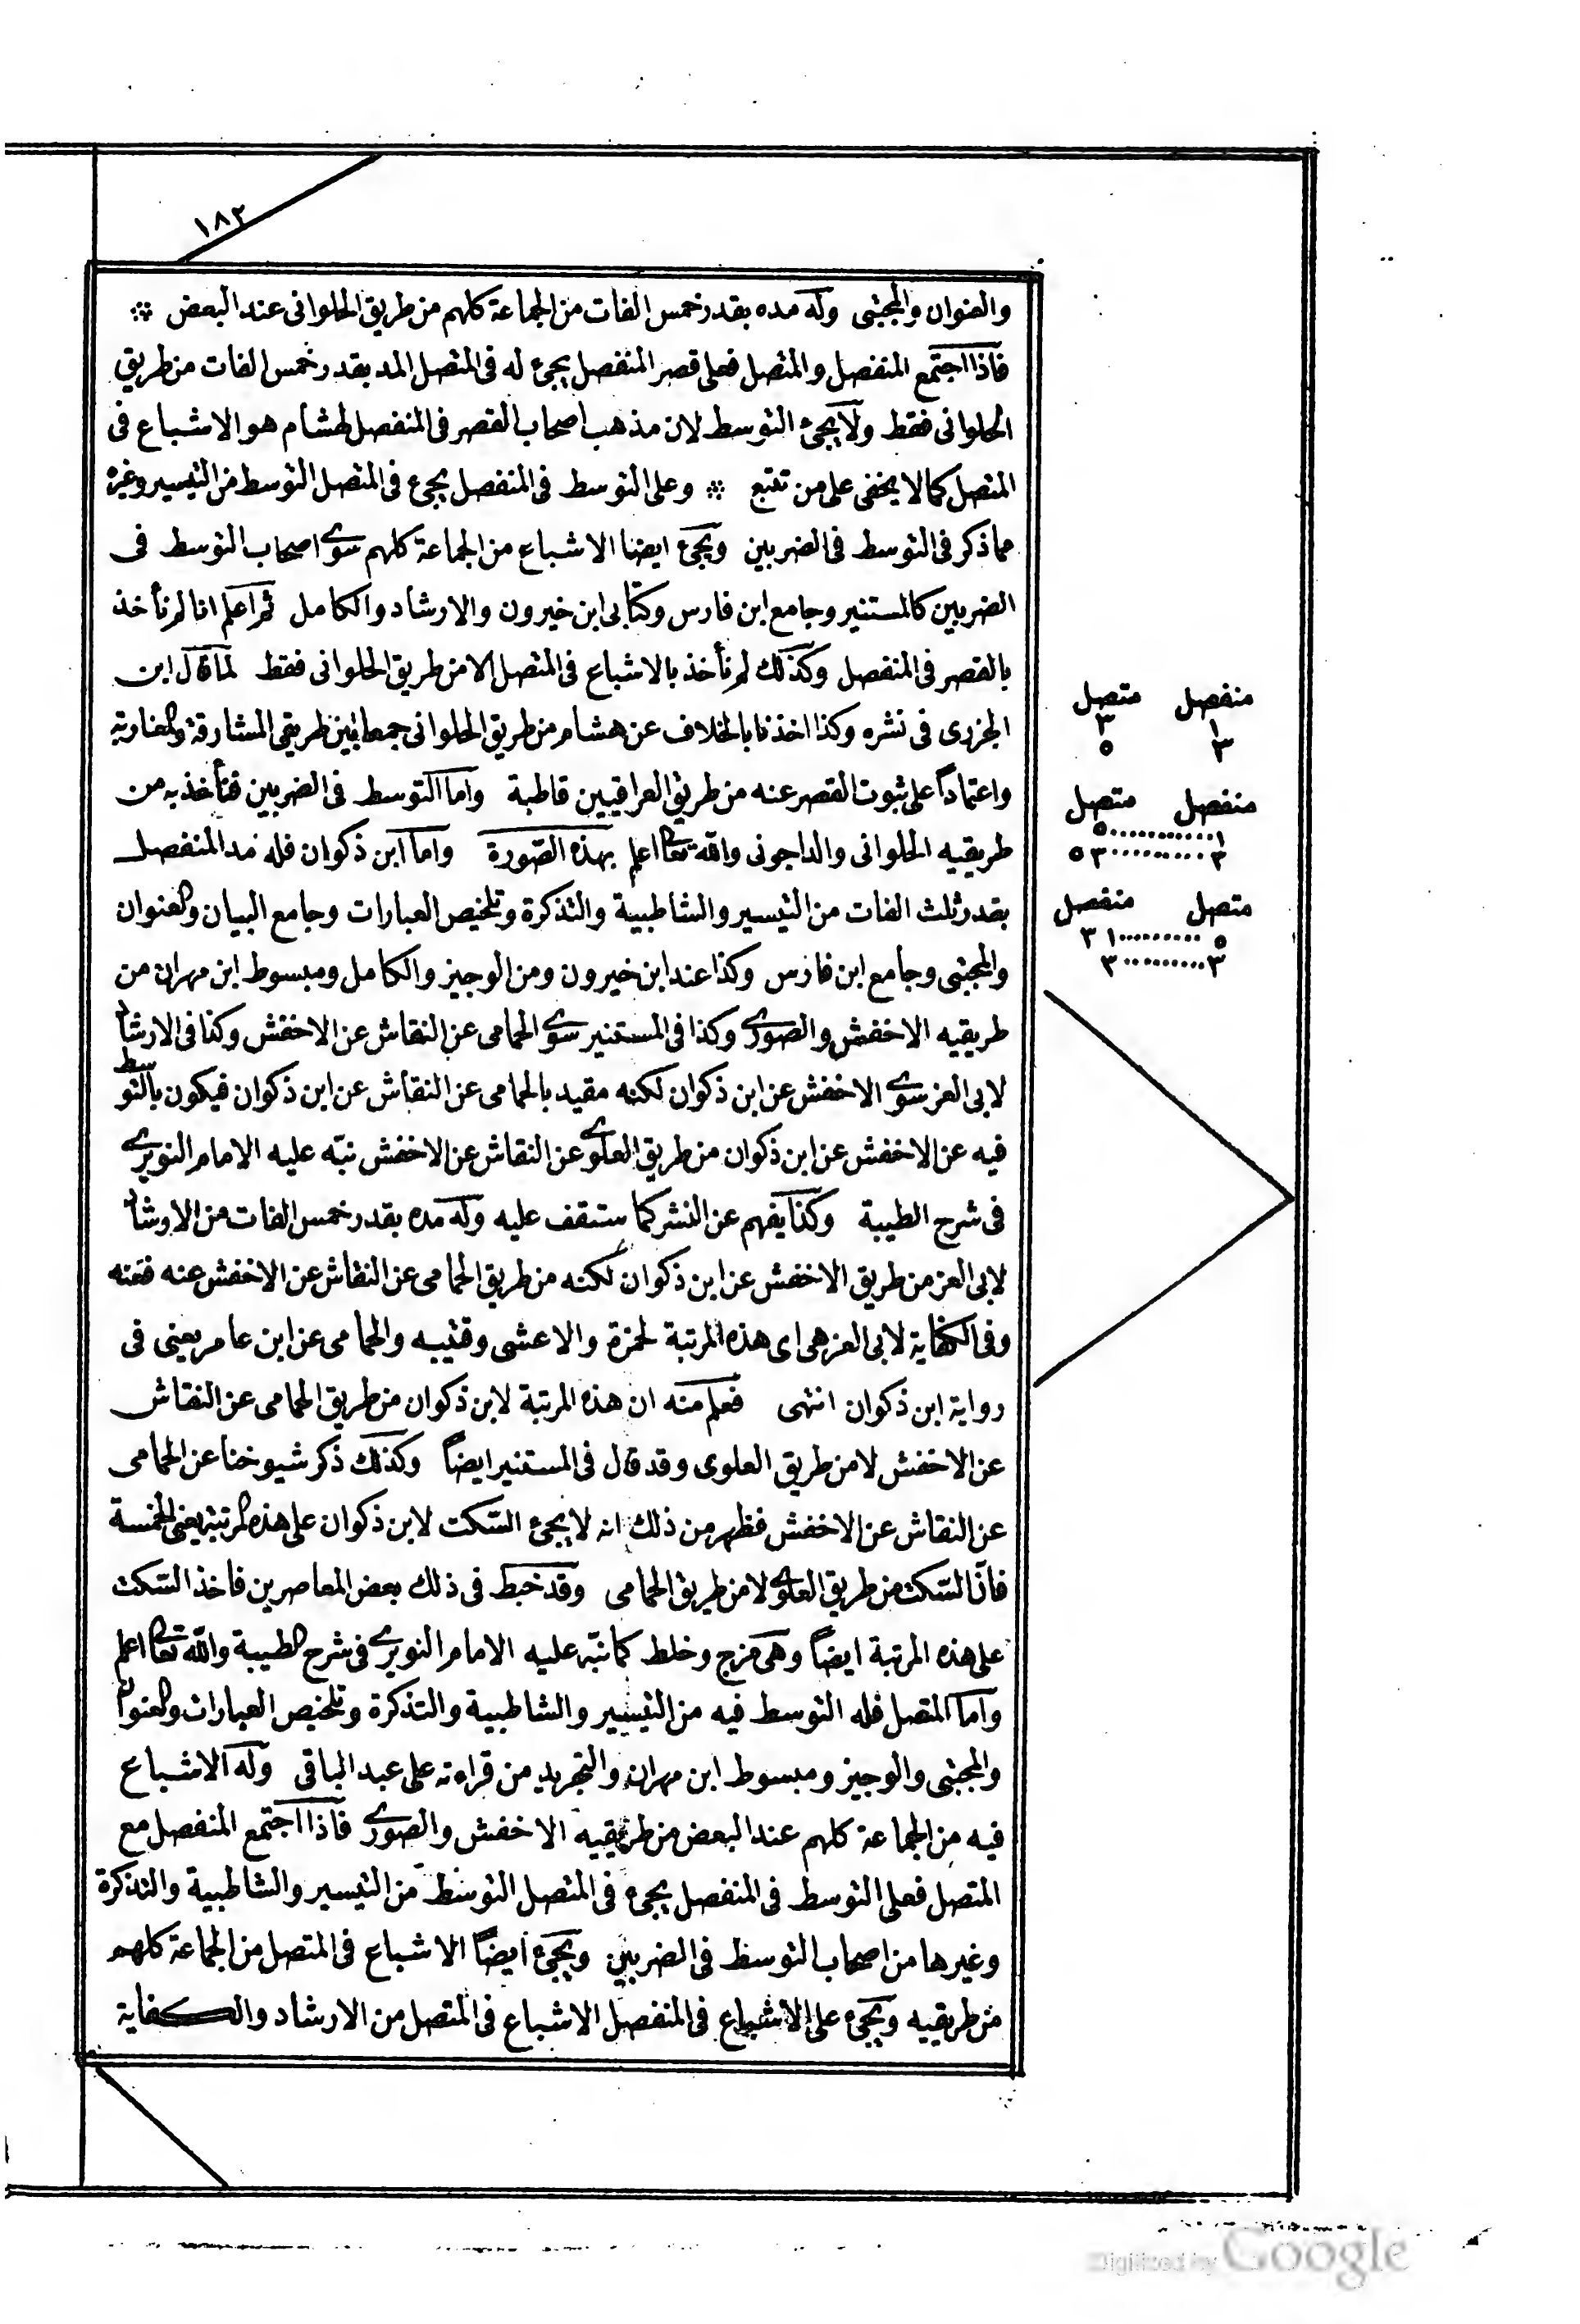 ١٨٢
والعنوان والمجتبى وله مده بقدر خمس الفات من الجماعة كلهم من طريق الحلوانى عند البعض ⁘
فاذا اجتمع المنفصل والمتصل فعلى قصر المنفصل يجئ له فى المتصل المد بقدر خمس الفات من طريق
الحلوانى فقط ولا يجئ التوسط لان مذهب اصحاب القصر فى المنفصل لهشام هو الاشباع فى
المتصل كما لا يخفى على من تتبع ⁘ وعلى التوسط فى المنفصل يجئ فى المتصل التوسط من التيسير وغيره
مما ذكر فى التوسط فى الضربين ويجئ ايضا الاشباع من الجماعة كلهم سوى اصحاب التوسط فى
الضربين كالمستنير وجامع ابن فارس وكتابى ابن خيرون والارشاد والكامل ثم اعلم انا لم نأخذ
بالقصر فى المنفصل وكذلك لم نأخذ بالاشباع فى المتصل الا من طريق الحلوانى فقط لما قال ابن
الجزرى فى نشره وكذا اخذنا بالخلاف عن هشام من طريق الحلوانى جمعا بين طريقى المشارقة والمغاربة
واعتماداً على ثبوت القصر عنه من طريق العراقيين قاطبة واما التوسط فى الضربين فنأخذ به من
طريقيه الحلوانى والداجونى والله تعالى اعلم بهذه الصّورة واما ابن ذكوان فله مد المنفصل
بقدر ثلث الفات من التيسير والشاطبية والتذكرة وتلخيص العبارات وجامع البيان والعنوان
والمجتبى وجامع ابن فارس وكذا عند ابن خيرون ومن الوجيز والكامل ومبسوط ابن مهران من
طريقيه الاخفش والصورى وكذا فى المستنير سوى الحمامى عن النقاش عن الاخفش وكذا فى الارشاد
لابى العز سوى الاخفش عن ابن ذكوان لكنه مقيد بالحمامى عن النقاش عن ابن ذكوان فيكون بالتوسط
فيه عن الاخفش عن ابن ذكوان من طريق العلوى عن النقاش عن الاخفش نبّه عليه الامام النويرى
فى شرح الطيبة وكذا يفهم عن النشر كما ستقف عليه وله مده بقدر خمس الفات من الارشاد
لابى العز من طريق الاخفش عن ابن ذكوان لكنه من طريق الحمامى عن النقاش عن الاخفش عنه فعنه
وفى الكفاية لابى العز هى اى هذه المرتبة لحمزة والاعشى وقتيبه والحمامى عن ابن عامر يعنى فى
رواية ابن ذكوان انتهى فعلم منه ان هذه المرتبة لابن ذكوان من طريق الحمامى عن النقاش
عن الاخفش لا من طريق العلوى وقد قال فى المستنير ايضاً وكذلك ذكر شيوخنا عن الحمامى
عن النقاش عن الاخفش فظهر من ذلك انه لا يجئ السّكت لابن ذكوان على هذه المرتبة يعنى الخمسة
فانّ السّكت من طريق العلوى لا من طريق الحمامى وقد خبط فى ذلك بعض المعاصرين فاخذ السّكت
على هذه المرتبة ايضاً وهى مزج وخلط كما نبّه عليه الامام النويرى فى شرح الطيبة والله تعالى اعلم
واما المتصل فله التوسط فيه من التيسير والشاطبية والتذكرة وتلخيص العبارات والعنوان
والمجتبى والوجيز ومبسوط ابن مهران والتجريد من قراءته على عبد الباقى وله الاشباع
فيه من الجماعة كلهم عند البعض من طريقيه الاخفش والصورى فاذا اجتمع المنفصل مع
المتصل فعلى التوسط فى المنفصل يجئ فى المتصل التوسط من التيسير والشاطبية والتذكرة
وغيرها من اصحاب التوسط فى الضربين ويجئ ايضاً الاشباع فى المتصل من الجماعة كلهم
من طريقيه ويجئ على الاشباع فى المنفصل الاشباع فى المتصل من الارشاد والكفاية
منفصل متصل
١ ٣
٣ ٥
منفصل متصل
١............٥
٣..........٣ ٥
متصل منفصل
٥..........١ ٣
٣..........٣
Digitized by Google